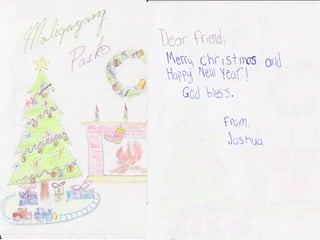 Maligayang
Pasko
Dear friend,
Merry Christmas and
Happy New Year!
God bless.
From,
Joshua